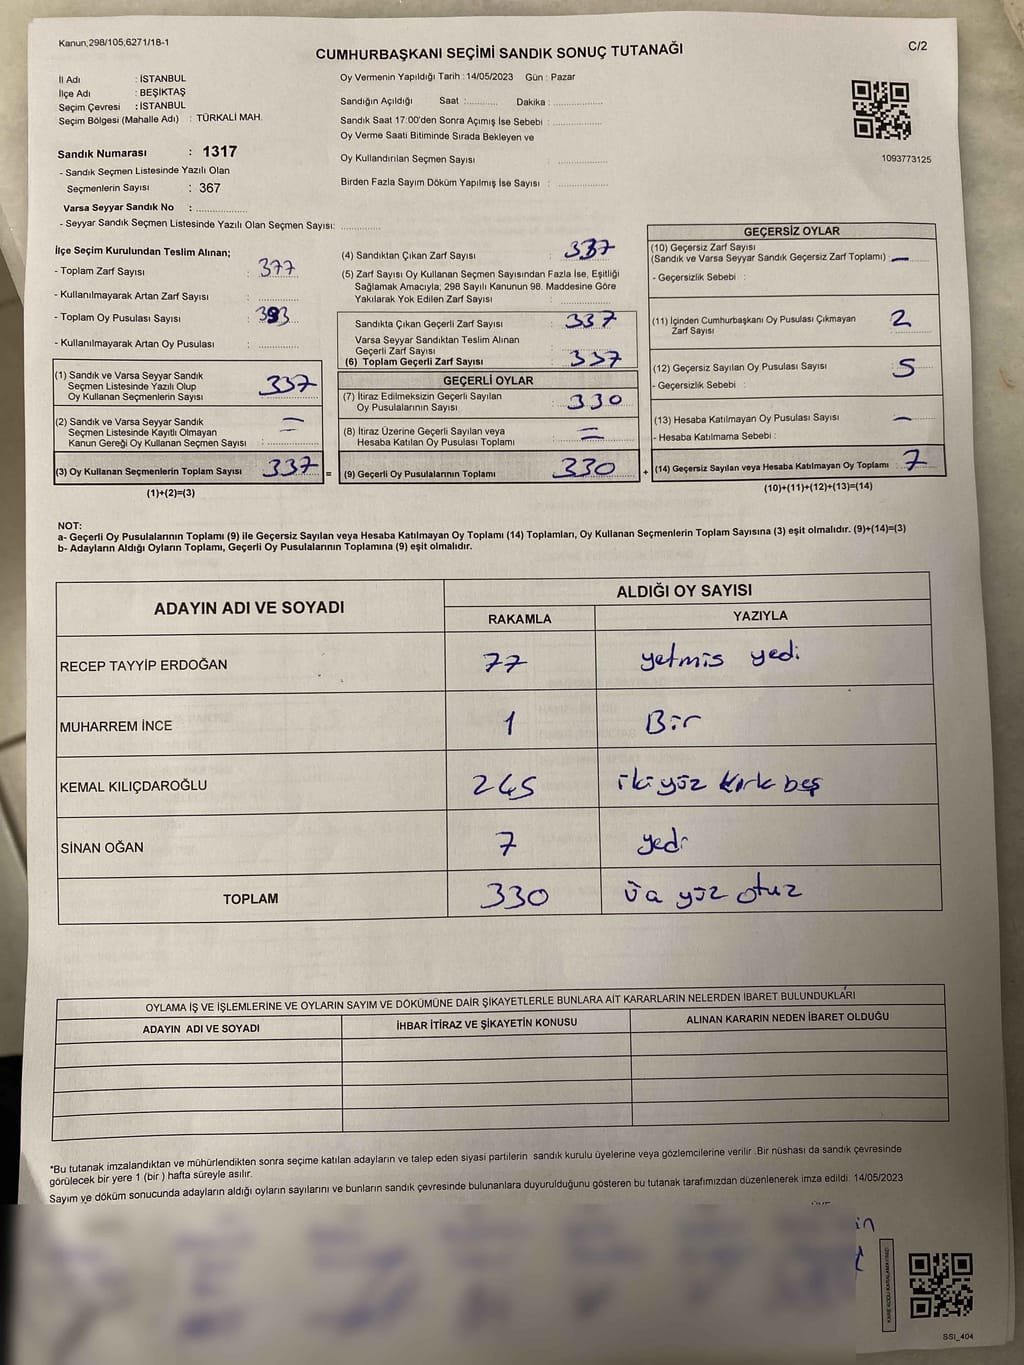 Kanun,298/105,6271/18-1
C/2
CUMHURBAŞKANI SEÇİMİ SANDIK SONUÇ TUTANAĞI
İl Adı : İSTANBUL
İlçe Adı : BEŞİKTAŞ
Seçim Çevresi : İSTANBUL
Seçim Bölgesi (Mahalle Adı) : TÜRKALİ MAH.
Sandık Numarası : 1317
- Sandık Seçmen Listesinde Yazılı Olan
Seçmenlerin Sayısı : 367
Varsa Seyyar Sandık No : ..................
- Seyyar Sandık Seçmen Listesinde Yazılı Olan Seçmen Sayısı: ..............
Oy Vermenin Yapıldığı Tarih : 14/05/2023 Gün : Pazar
Sandığın Açıldığı Saat :........... Dakika : .................
Sandık Saat 17:00'den Sonra Açımış İse Sebebi : .................
Oy Verme Saati Bitiminde Sırada Bekleyen ve
Oy Kullandırılan Seçmen Sayısı : .................
Birden Fazla Sayım Döküm Yapılmış İse Sayısı : .................
1093773125
İlçe Seçim Kurulundan Teslim Alınan;
- Toplam Zarf Sayısı : 377
- Kullanılmayarak Artan Zarf Sayısı : .............
- Toplam Oy Pusulası Sayısı : 393
- Kullanılmayarak Artan Oy Pusulası : .............
(1) Sandık ve Varsa Seyyar Sandık
Seçmen Listesinde Yazılı Olup
Oy Kullanan Seçmenlerin Sayısı : 337
(2) Sandık ve Varsa Seyyar Sandık
Seçmen Listesinde Kayıtlı Olmayan
Kanun Gereği Oy Kullanan Seçmen Sayısı : =
(3) Oy Kullanan Seçmenlerin Toplam Sayısı 337 =
(1)+(2)=(3)
(4) Sandıktan Çıkan Zarf Sayısı : 337
(5) Zarf Sayısı Oy Kullanan Seçmen Sayısından Fazla İse, Eşitliği
Sağlamak Amacıyla; 298 Sayılı Kanunun 98. Maddesine Göre
Yakılarak Yok Edilen Zarf Sayısı : .............
Sandıkta Çıkan Geçerli Zarf Sayısı : 337
Varsa Seyyar Sandıktan Teslim Alınan
Geçerli Zarf Sayısı
(6) Toplam Geçerli Zarf Sayısı : 337
GEÇERLİ OYLAR
(7) İtiraz Edilmeksizin Geçerli Sayılan
Oy Pusulalarının Sayısı : 330
(8) İtiraz Üzerine Geçerli Sayılan veya
Hesaba Katılan Oy Pusulası Toplamı : =
(9) Geçerli Oy Pusulalarının Toplamı 330 +
GEÇERSİZ OYLAR
(10) Geçersiz Zarf Sayısı
(Sandık ve Varsa Seyyar Sandık Geçersiz Zarf Toplamı) : –
- Geçersizlik Sebebi :
(11) İçinden Cumhurbaşkanı Oy Pusulası Çıkmayan
Zarf Sayısı 2
(12) Geçersiz Sayılan Oy Pusulası Sayısı : 5
- Geçersizlik Sebebi :
(13) Hesaba Katılmayan Oy Pusulası Sayısı : –
- Hesaba Katılmama Sebebi :
(14) Geçersiz Sayılan veya Hesaba Katılmayan Oy Toplamı : 7
(10)+(11)+(12)+(13)=(14)
NOT:
a- Geçerli Oy Pusulalarının Toplamı (9) ile Geçersiz Sayılan veya Hesaba Katılmayan Oy Toplamı (14) Toplamları, Oy Kullanan Seçmenlerin Toplam Sayısına (3) eşit olmalıdır. (9)+(14)=(3)
b- Adayların Aldığı Oyların Toplamı, Geçerli Oy Pusulalarının Toplamına (9) eşit olmalıdır.
ADAYIN ADI VE SOYADI
ALDIĞI OY SAYISI
RAKAMLA YAZIYLA
RECEP TAYYİP ERDOĞAN 77 yetmis yedi
MUHARREM İNCE 1 Bir
KEMAL KILIÇDAROĞLU 245 iki yüz kırk beş
SİNAN OĞAN 7 yedi
TOPLAM 330 üç yüz otuz
OYLAMA İŞ VE İŞLEMLERİNE VE OYLARIN SAYIM VE DÖKÜMÜNE DAİR ŞİKAYETLERLE BUNLARA AİT KARARLARIN NELERDEN İBARET BULUNDUKLARI
ADAYIN ADI VE SOYADI İHBAR İTİRAZ VE ŞİKAYETİN KONUSU ALINAN KARARIN NEDEN İBARET OLDUĞU
*Bu tutanak imzalandıktan ve mühürlendikten sonra seçime katılan adayların ve talep eden siyasi partilerin sandık kurulu üyelerine veya gözlemcilerine verilir .Bir nüshası da sandık çevresinde
görülecek bir yere 1 (bir ) hafta süreyle asılır.
Sayım ve döküm sonucunda adayların aldığı oyların sayılarını ve bunların sandık çevresinde bulunanlara duyurulduğunu gösteren bu tutanak tarafımızdan düzenlenerek imza edildi. 14/05/2023
SSI_404